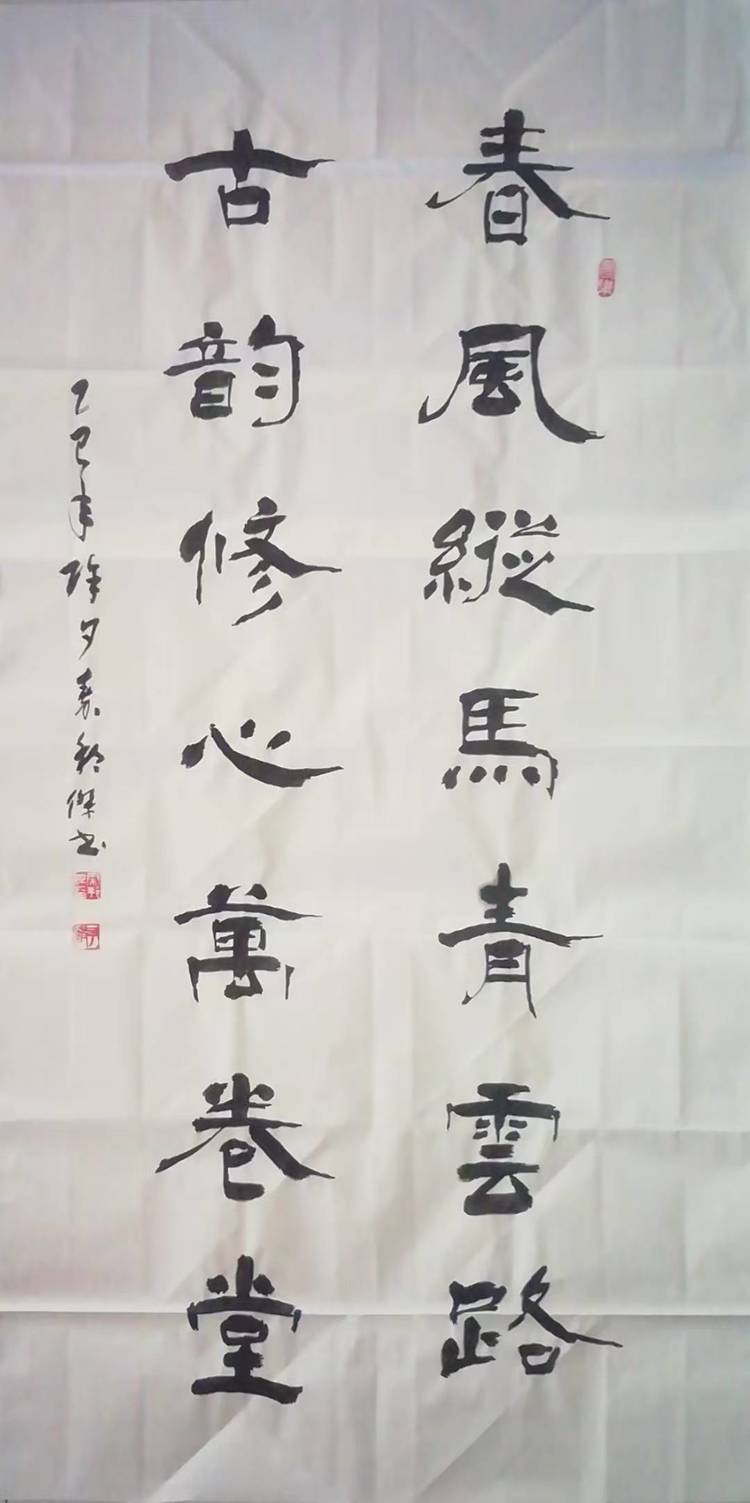 春風縱馬青雲路
古韵修心萬卷堂
乙巳年除夕袁 傑书